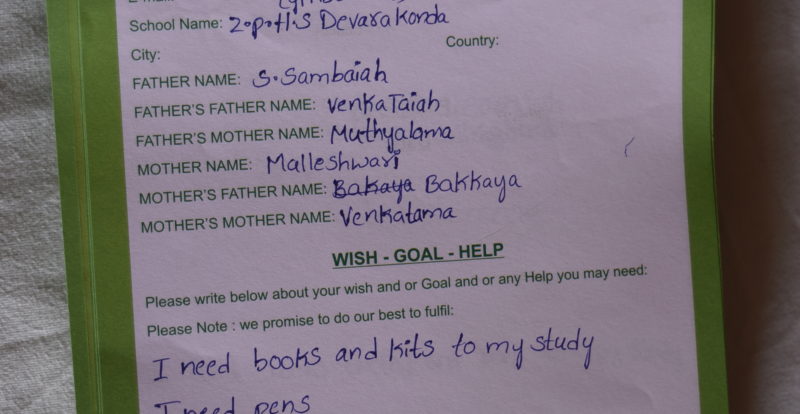 School Name: Z.P.H.S Devarakonda
City: Country:
FATHER NAME: S. Sambaiah
FATHER'S FATHER NAME: Venkataiah
FATHER'S MOTHER NAME: Muthyalama
MOTHER NAME: Malleshwari
MOTHER'S FATHER NAME: Bakaya Bakkaya
MOTHER'S MOTHER NAME: Venkatama
WISH - GOAL - HELP
Please write below about your wish and or Goal and or any Help you may need:
Please Note : we promise to do our best to fulfil:
I need books and kits to my study
I need pens